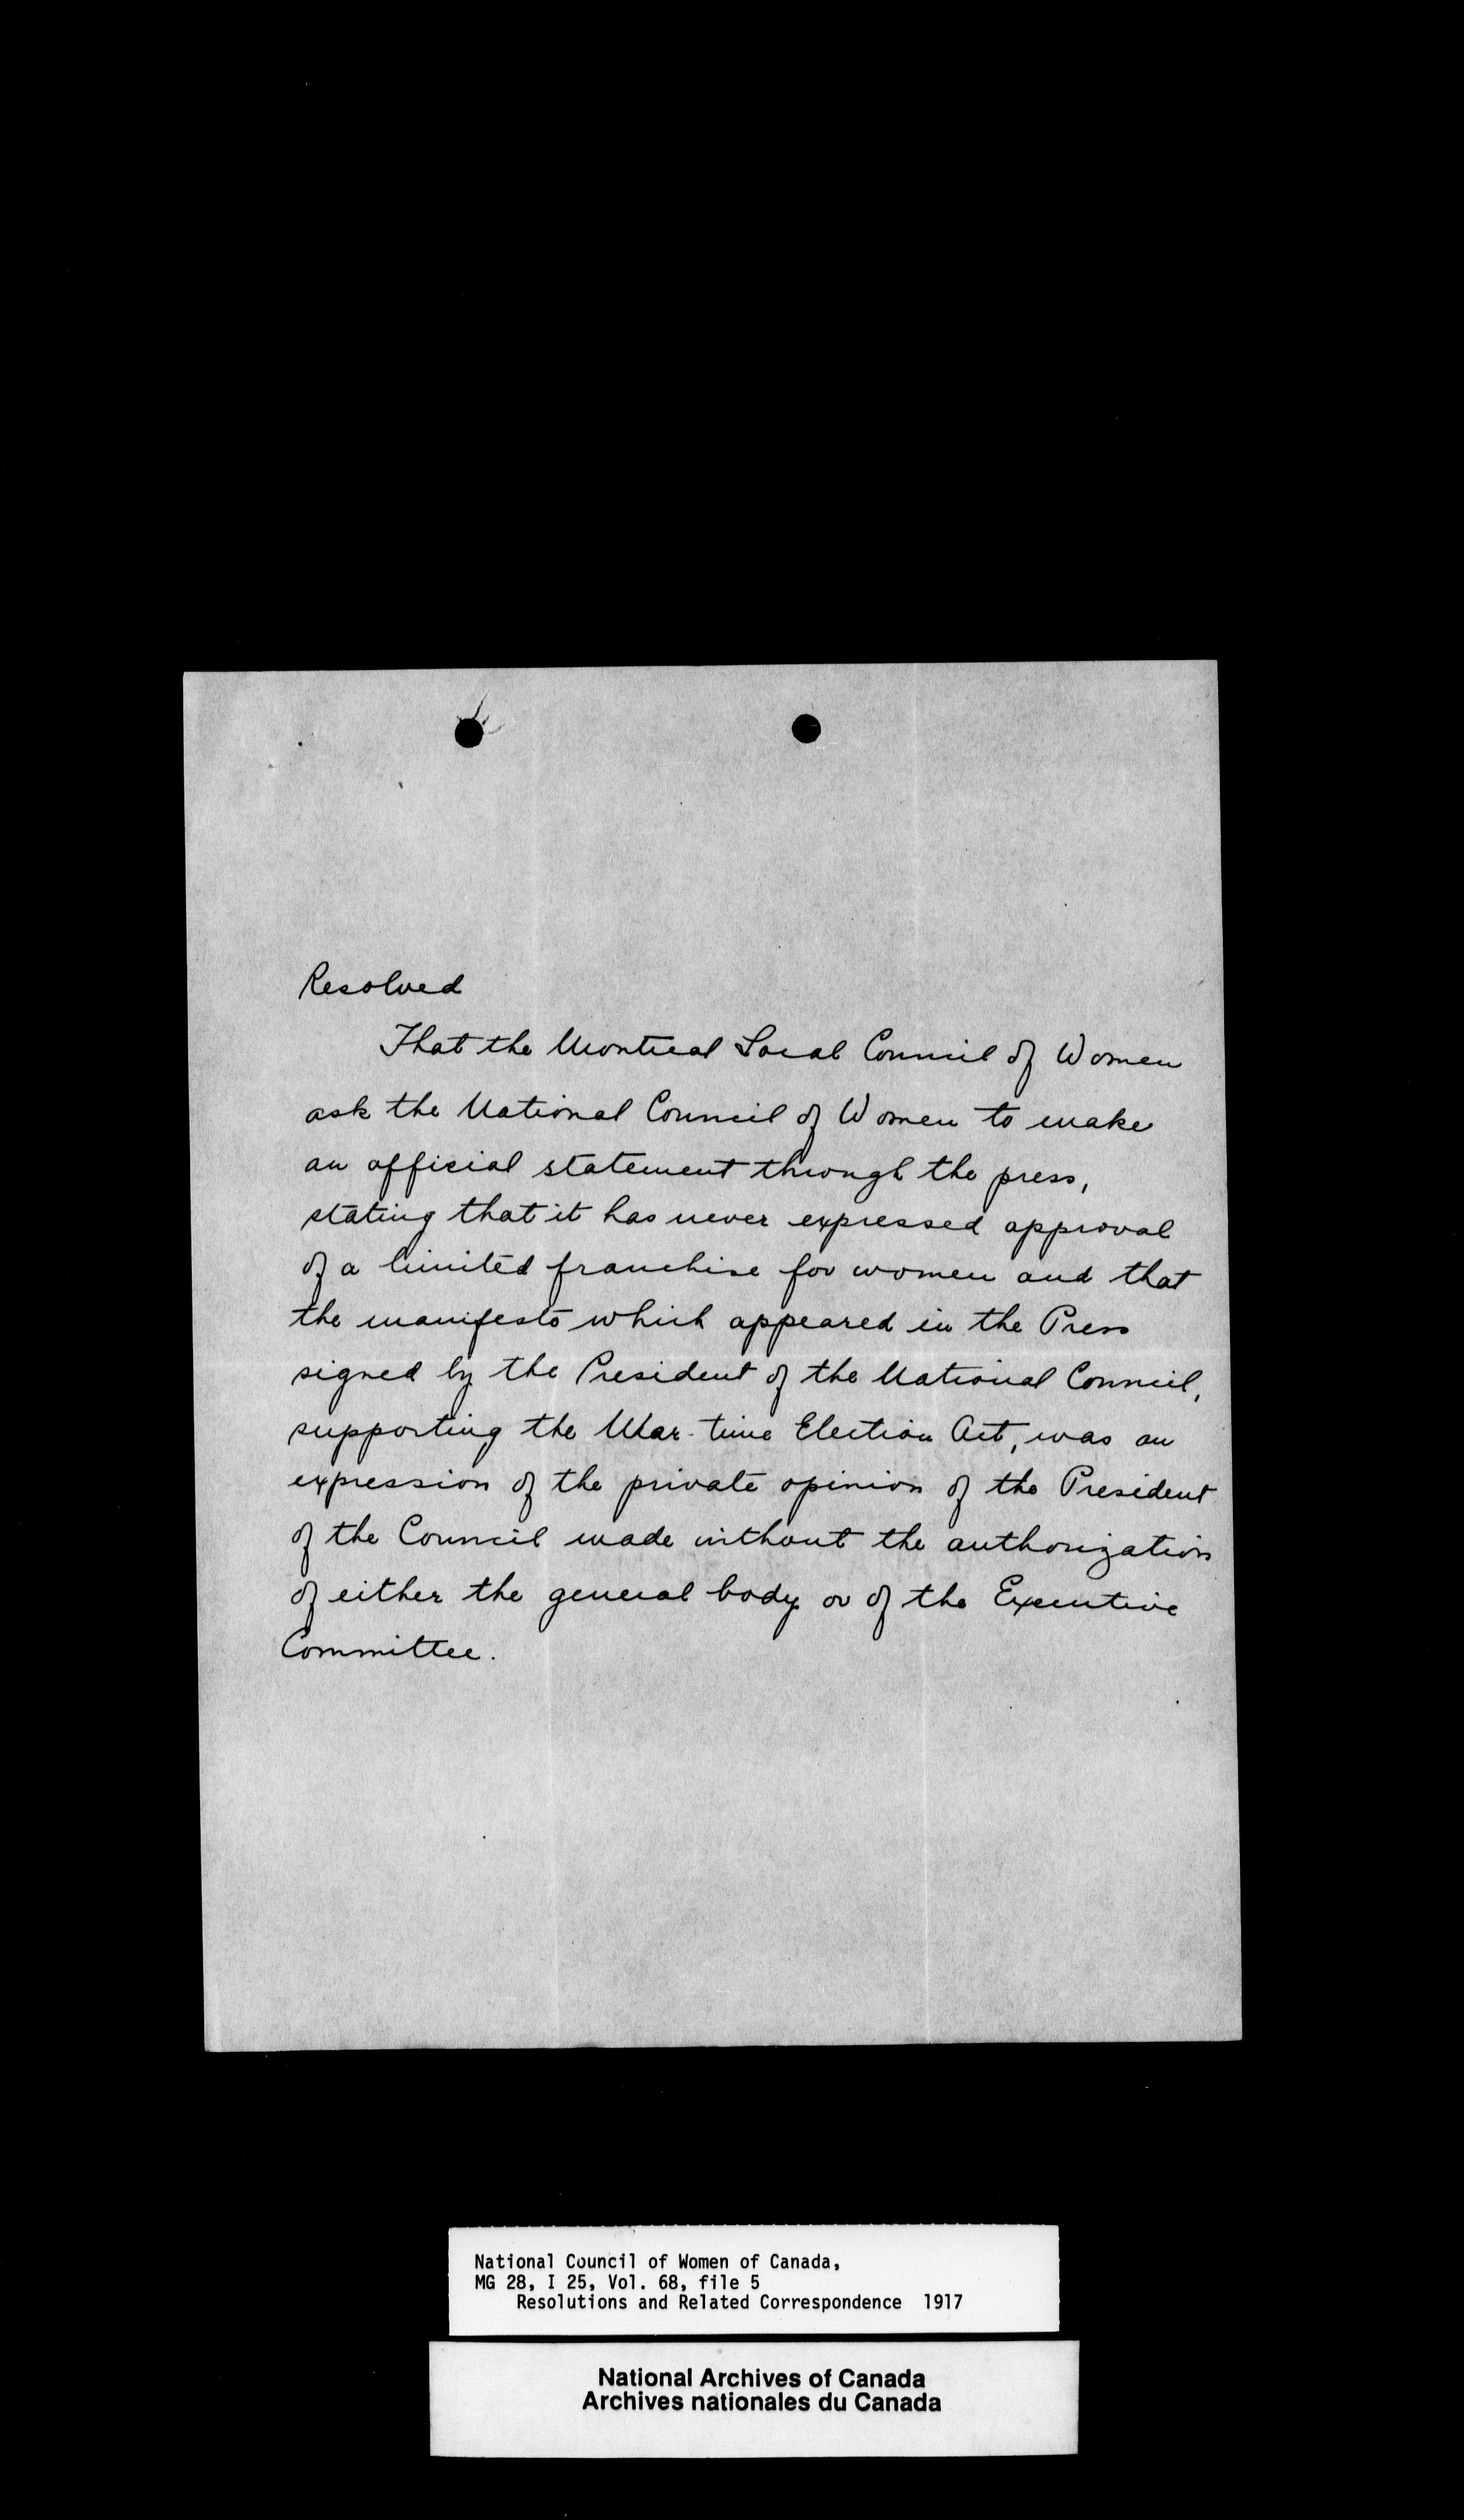 Resolved
That the Montreal Local Council of Women
ask the National Council of Women to make
an official statement through the press,
stating that it has never expressed approval
of a limited franchise for women and that
the manifesto which appeared in the Press
signed by the President of the National Council,
supporting the War-time Election Act, was an
expression of the private opinion of the President
of the Council made without the authorization
of either the general body or of the Executive
Committee.
National Council of Women of Canada,
MG 28, I 25, Vol. 68, file 5
Resolutions and Related Correspondence 1917
National Archives of Canada
Archives nationales du Canada